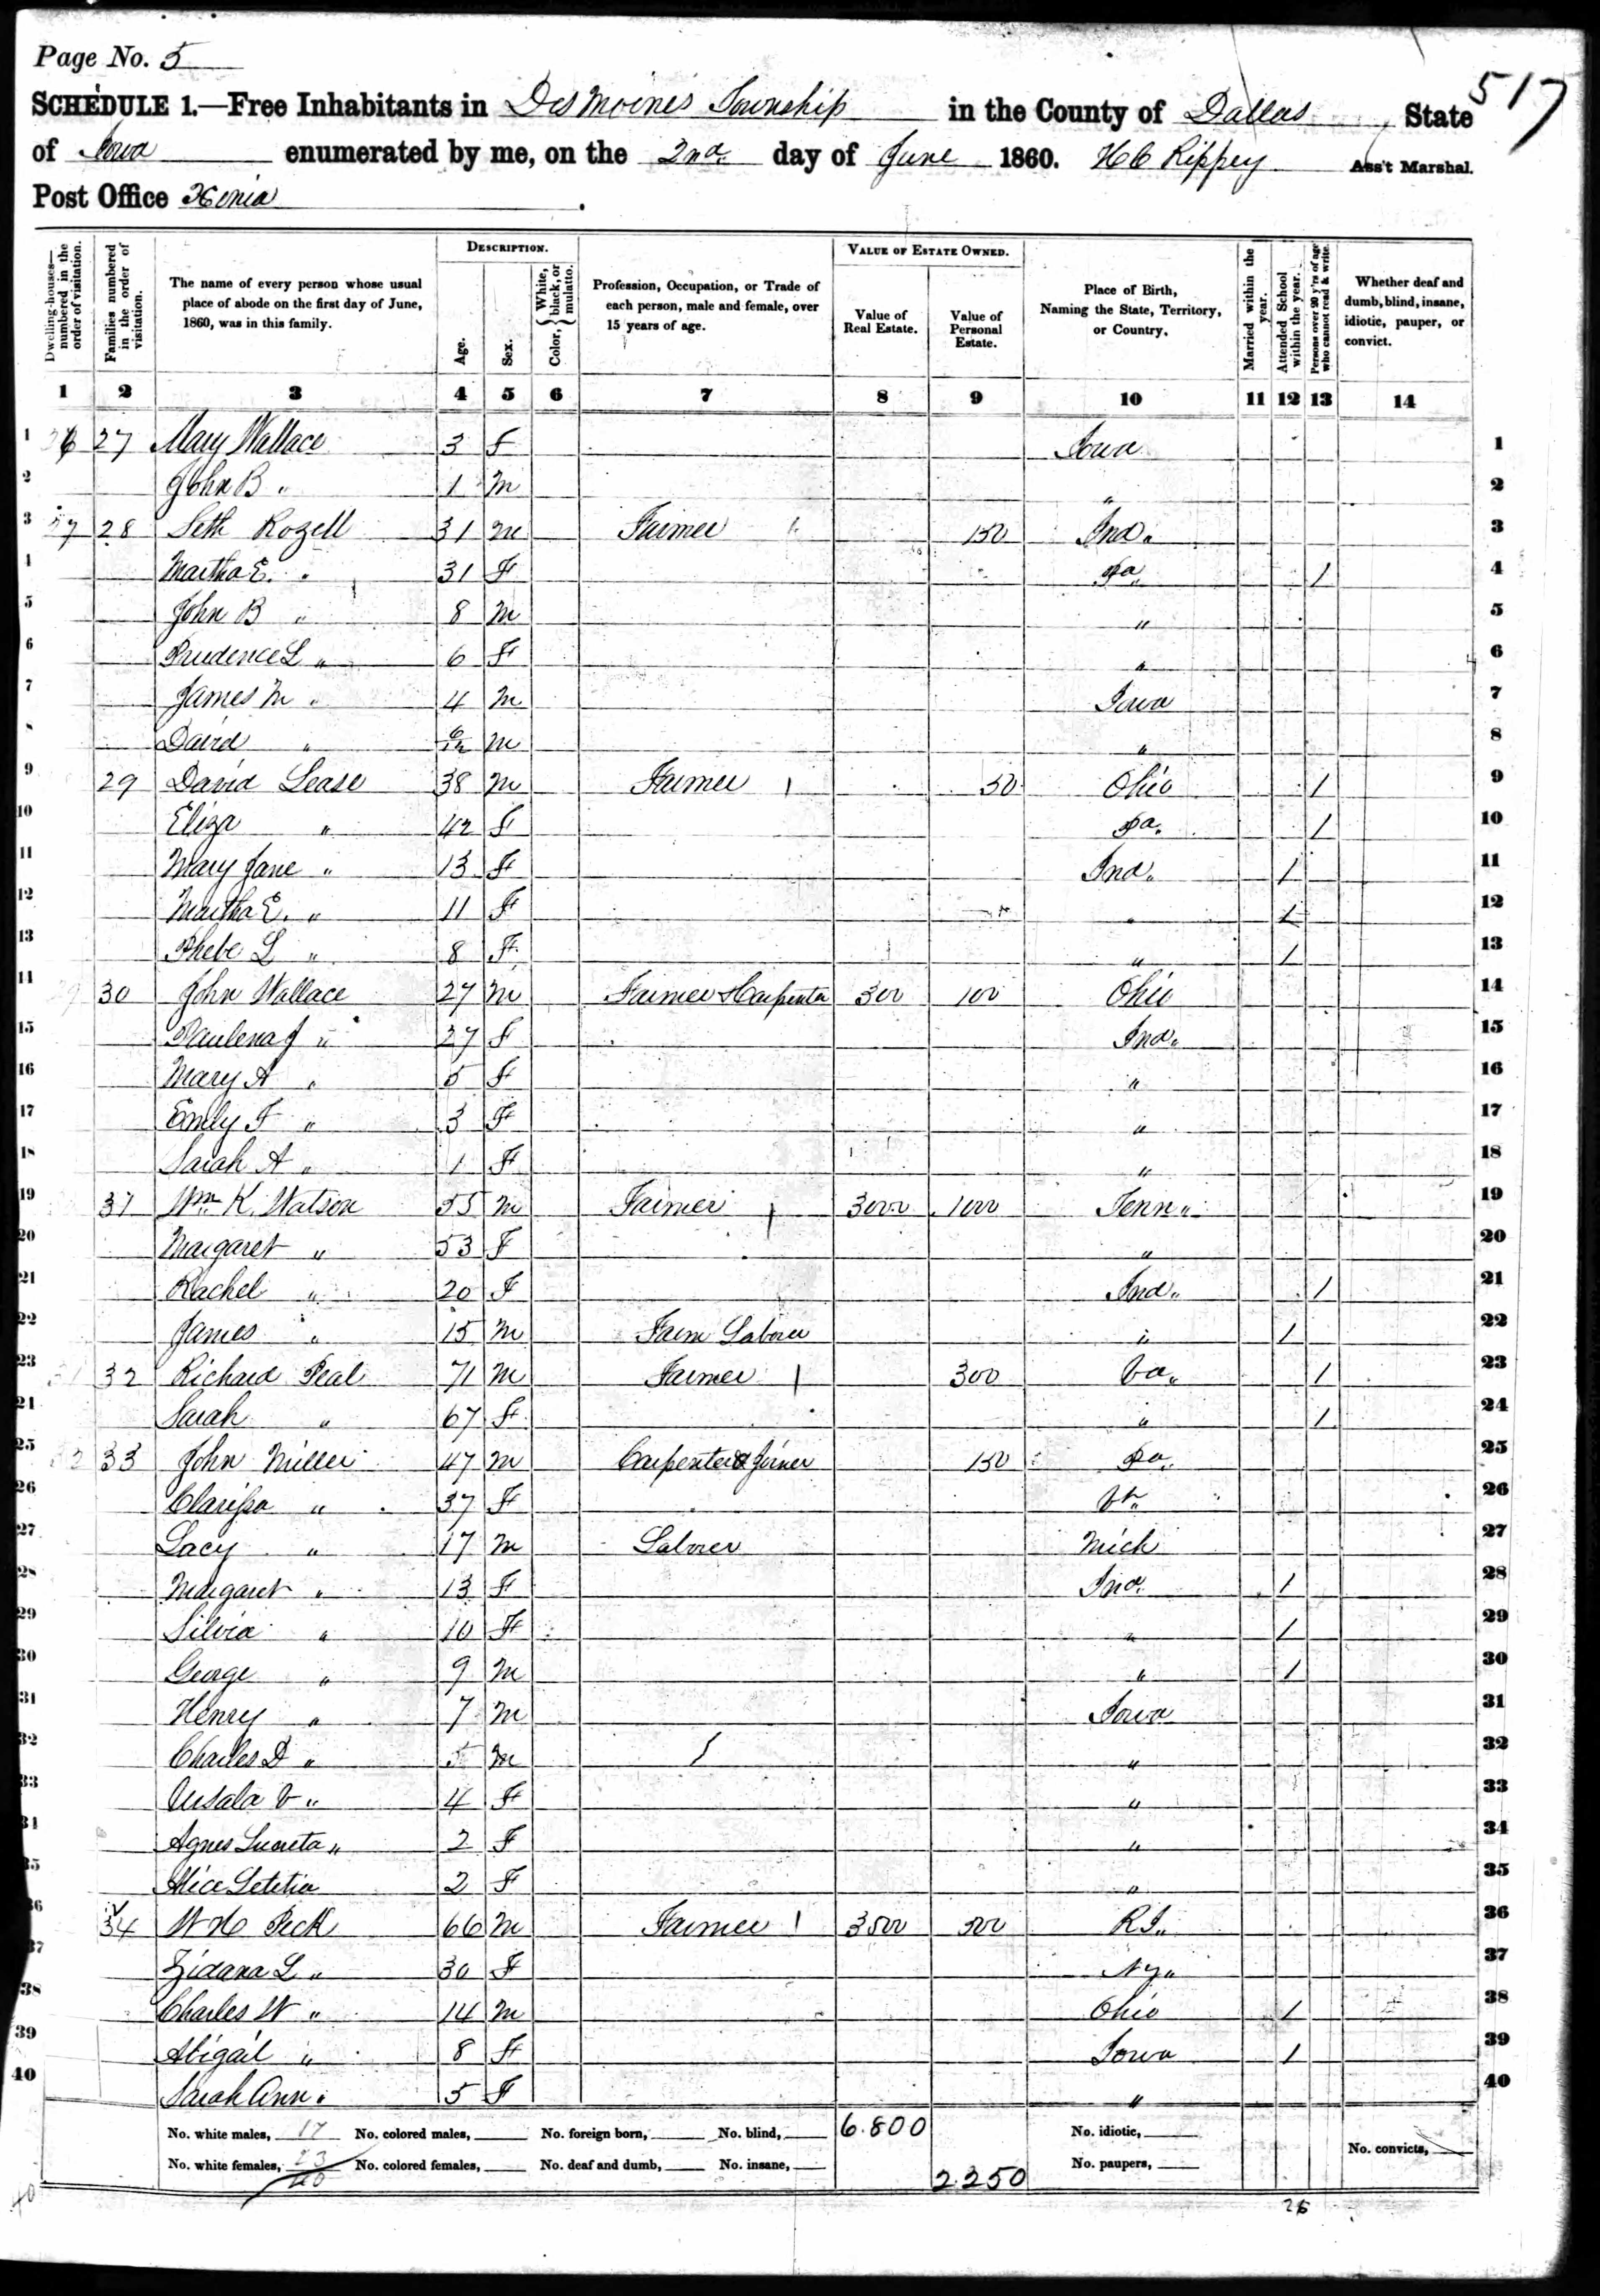 Page No. 5
517
SCHEDULE 1.—Free Inhabitants in Des Moines Township in the County of Dallas State
of Iowa enumerated by me, on the 2nd day of June 1860. H C Rippey Ass't Marshal.
Post Office Xenia
Dwelling-houses—numbered in the order of visitation.
Families numbered in the order of visitation.
The name of every person whose usual place of abode on the first day of June, 1860, was in this family.
DESCRIPTION.
Age.
Sex.
Color, { White, black, or mulatto.
Profession, Occupation, or Trade of each person, male and female, over 15 years of age.
VALUE OF ESTATE OWNED.
Value of Real Estate.
Value of Personal Estate.
Place of Birth, Naming the State, Territory, or Country.
Married within the year.
Attended School within the year.
Persons over 20 y'rs of age who cannot read & write.
Whether deaf and dumb, blind, insane, idiotic, pauper, or convict.
1 2 3 4 5 6 7 8 9 10 11 12 13 14
1 26 27 Mary Wallace 3 F Iowa 1
2 John B " 1 M " 2
3 27 28 Seth Rozell 31 M Farmer 150 Ind. 3
4 Martha E. " 31 F Pa 1 4
5 John B " 8 M " 5
6 Prudence L " 6 F " 6
7 James M " 4 M Iowa 7
8 David " 6/12 M " 8
9 29 David Lease 38 M Farmer 1 50 Ohio 1 9
10 Eliza " 42 F Pa. 1 10
11 Mary Jane " 13 F Ind. 1 11
12 Martha E. " 11 F " 1 12
13 Phebe L " 8 F " 1 13
14 29 30 John Wallace 27 M Farmer & Carpenter 300 100 Ohio 14
15 Paulena J " 27 F Ind. 15
16 Mary A " 5 F " 16
17 Emly F " 3 F " 17
18 Sarah A " 1 F " 18
19 31 Wm K. Watson 55 M Farmer 1 3000 1000 Tenn " 19
20 Margaret " 53 F " 20
21 Rachel " 20 F Ind. 1 21
22 James " 15 M Farm Laborer " 1 22
23 31 32 Richard Peal 71 M Farmer 1 300 Va. 1 23
24 Sarah " 67 F " 1 24
25 32 33 John Miller 47 M Carpenter & Joiner 150 Pa. 25
26 Clarissa " 37 F Vt. 26
27 Lacy " 17 M Laborer Mich 27
28 Margaret " 13 F Ind. 1 28
29 Silvia " 10 F " 1 29
30 George " 9 M " 1 30
31 Henry " 7 M Iowa 31
32 Charles D " 5 M 1 " 32
33 Ursala V " 4 F " 33
34 Agnes Lucreta " 2 F " 34
35 Alice Letitia 2 F " 35
36 34 W H Peck 66 M Farmer 1 3500 500 R I. 36
37 L " 30 F Ny " 37
38 Charles W " 14 M Ohio 1 38
39 Abigail " 8 F Iowa 1 39
40 Sarah Ann " 5 F " 40
No. white males, 17 No. colored males, No. foreign born, No. blind, 6.800 No. idiotic,
No. white females, 23 No. colored females, No. deaf and dumb, No. insane, 2250 No. paupers, No. convicts,
40
40